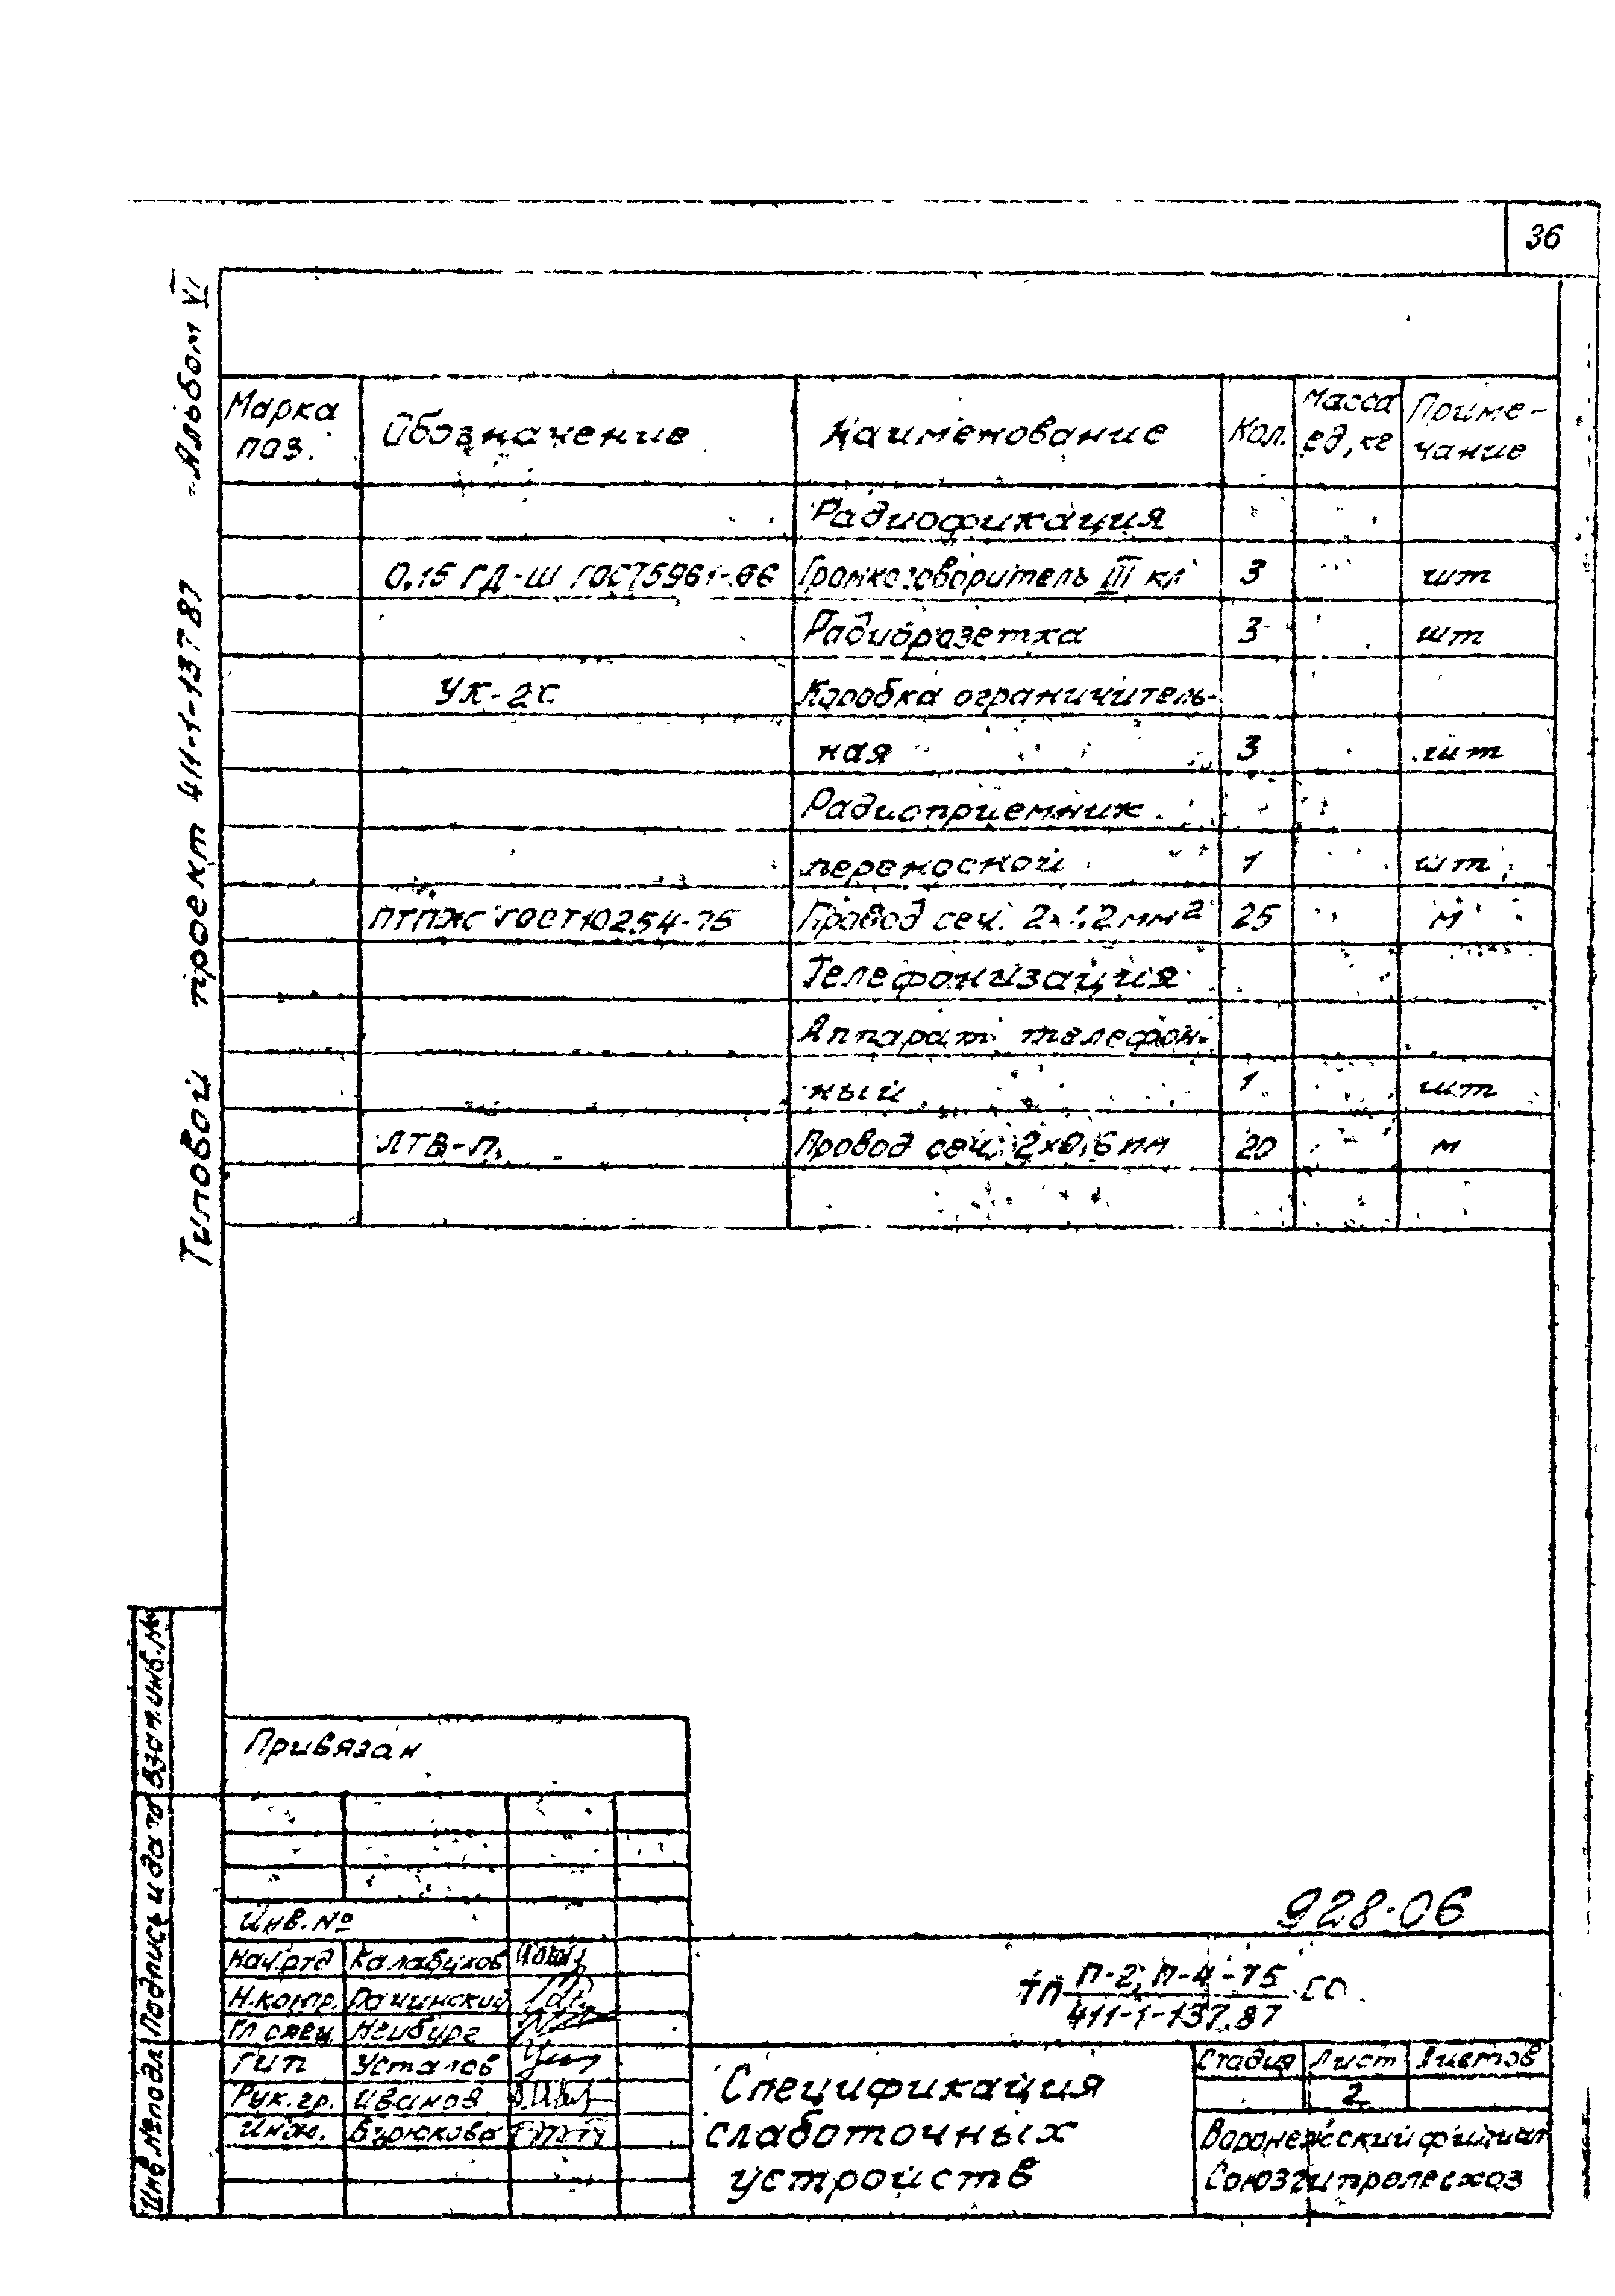 36
Типовой проект 411-1-137 87 Альбом VI
Марка поз. Обозначение Наименование Кол. Масса ед, кг Приме-чание
Радиофикация
0,15 ГД-Ш ГОСТ5961-66 Громкоговоритель III кл 3 шт
Радиорозетка 3 шт
УК-2С Коробка ограничитель-
ная 3 шт
Радиоприемник
переносной 1 шт
ПТПЖ ГОСТ10254-75 Провод сеч. 2×1,2мм² 25 м
Телефонизация
Аппарат телефон-
ный 1 шт
ЛТВ-П. Провод сеч. 2х0,6мм 20 м
Взам. инв. №
Подпись и дата
Инв № подл
Привязан
Инв. №
928-06
Нач. отд Калабухов
Н. контр. Рачинский
Гл спец Нейбург
ГИП Усталов
Рук. гр. Иванов
Инж. Бирюкова
ТП П-2; П-4-75 СО
411-1-137.87
Спецификация
слаботочных
устройств
Стадия Лист Листов
2
Воронежский филиал
Союзгипролесхоз